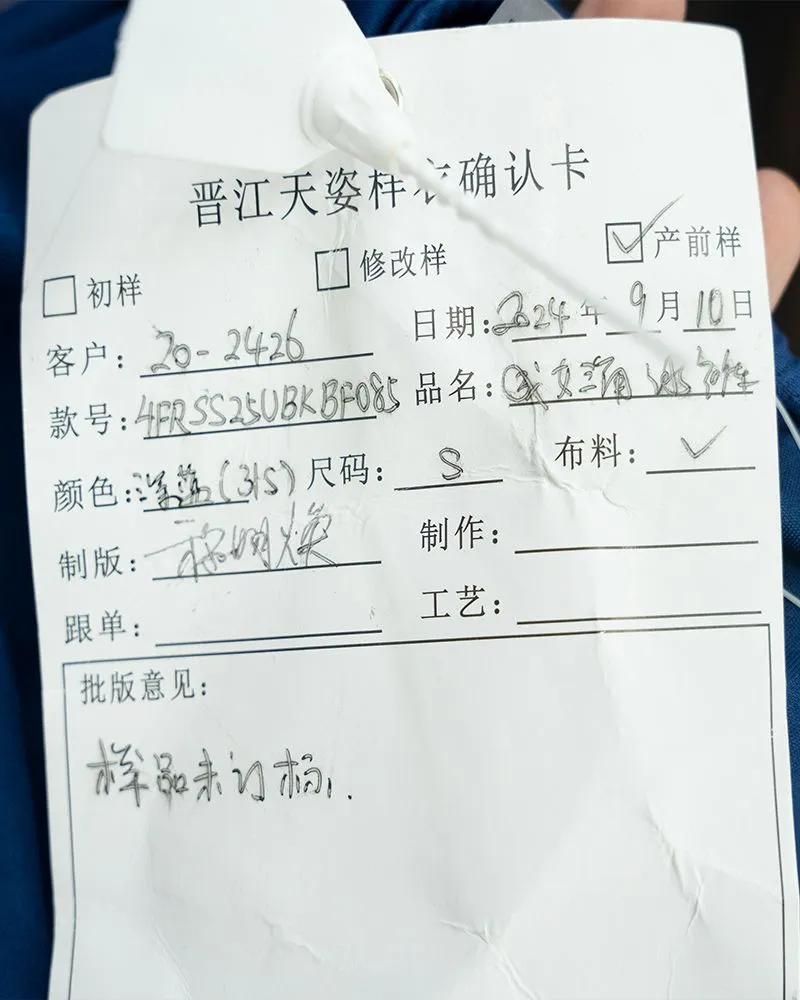 晋江天姿样衣确认卡
初样 修改样 产前样
客户: 20-2426 日期: 2024年9月10日
款号: 4FRSS25UBKBF085 品名:
颜色: 洋蓝(315) 尺码: S 布料: ✓
制版: 制作:
跟单: 工艺:
批版意见:
样品未订标.